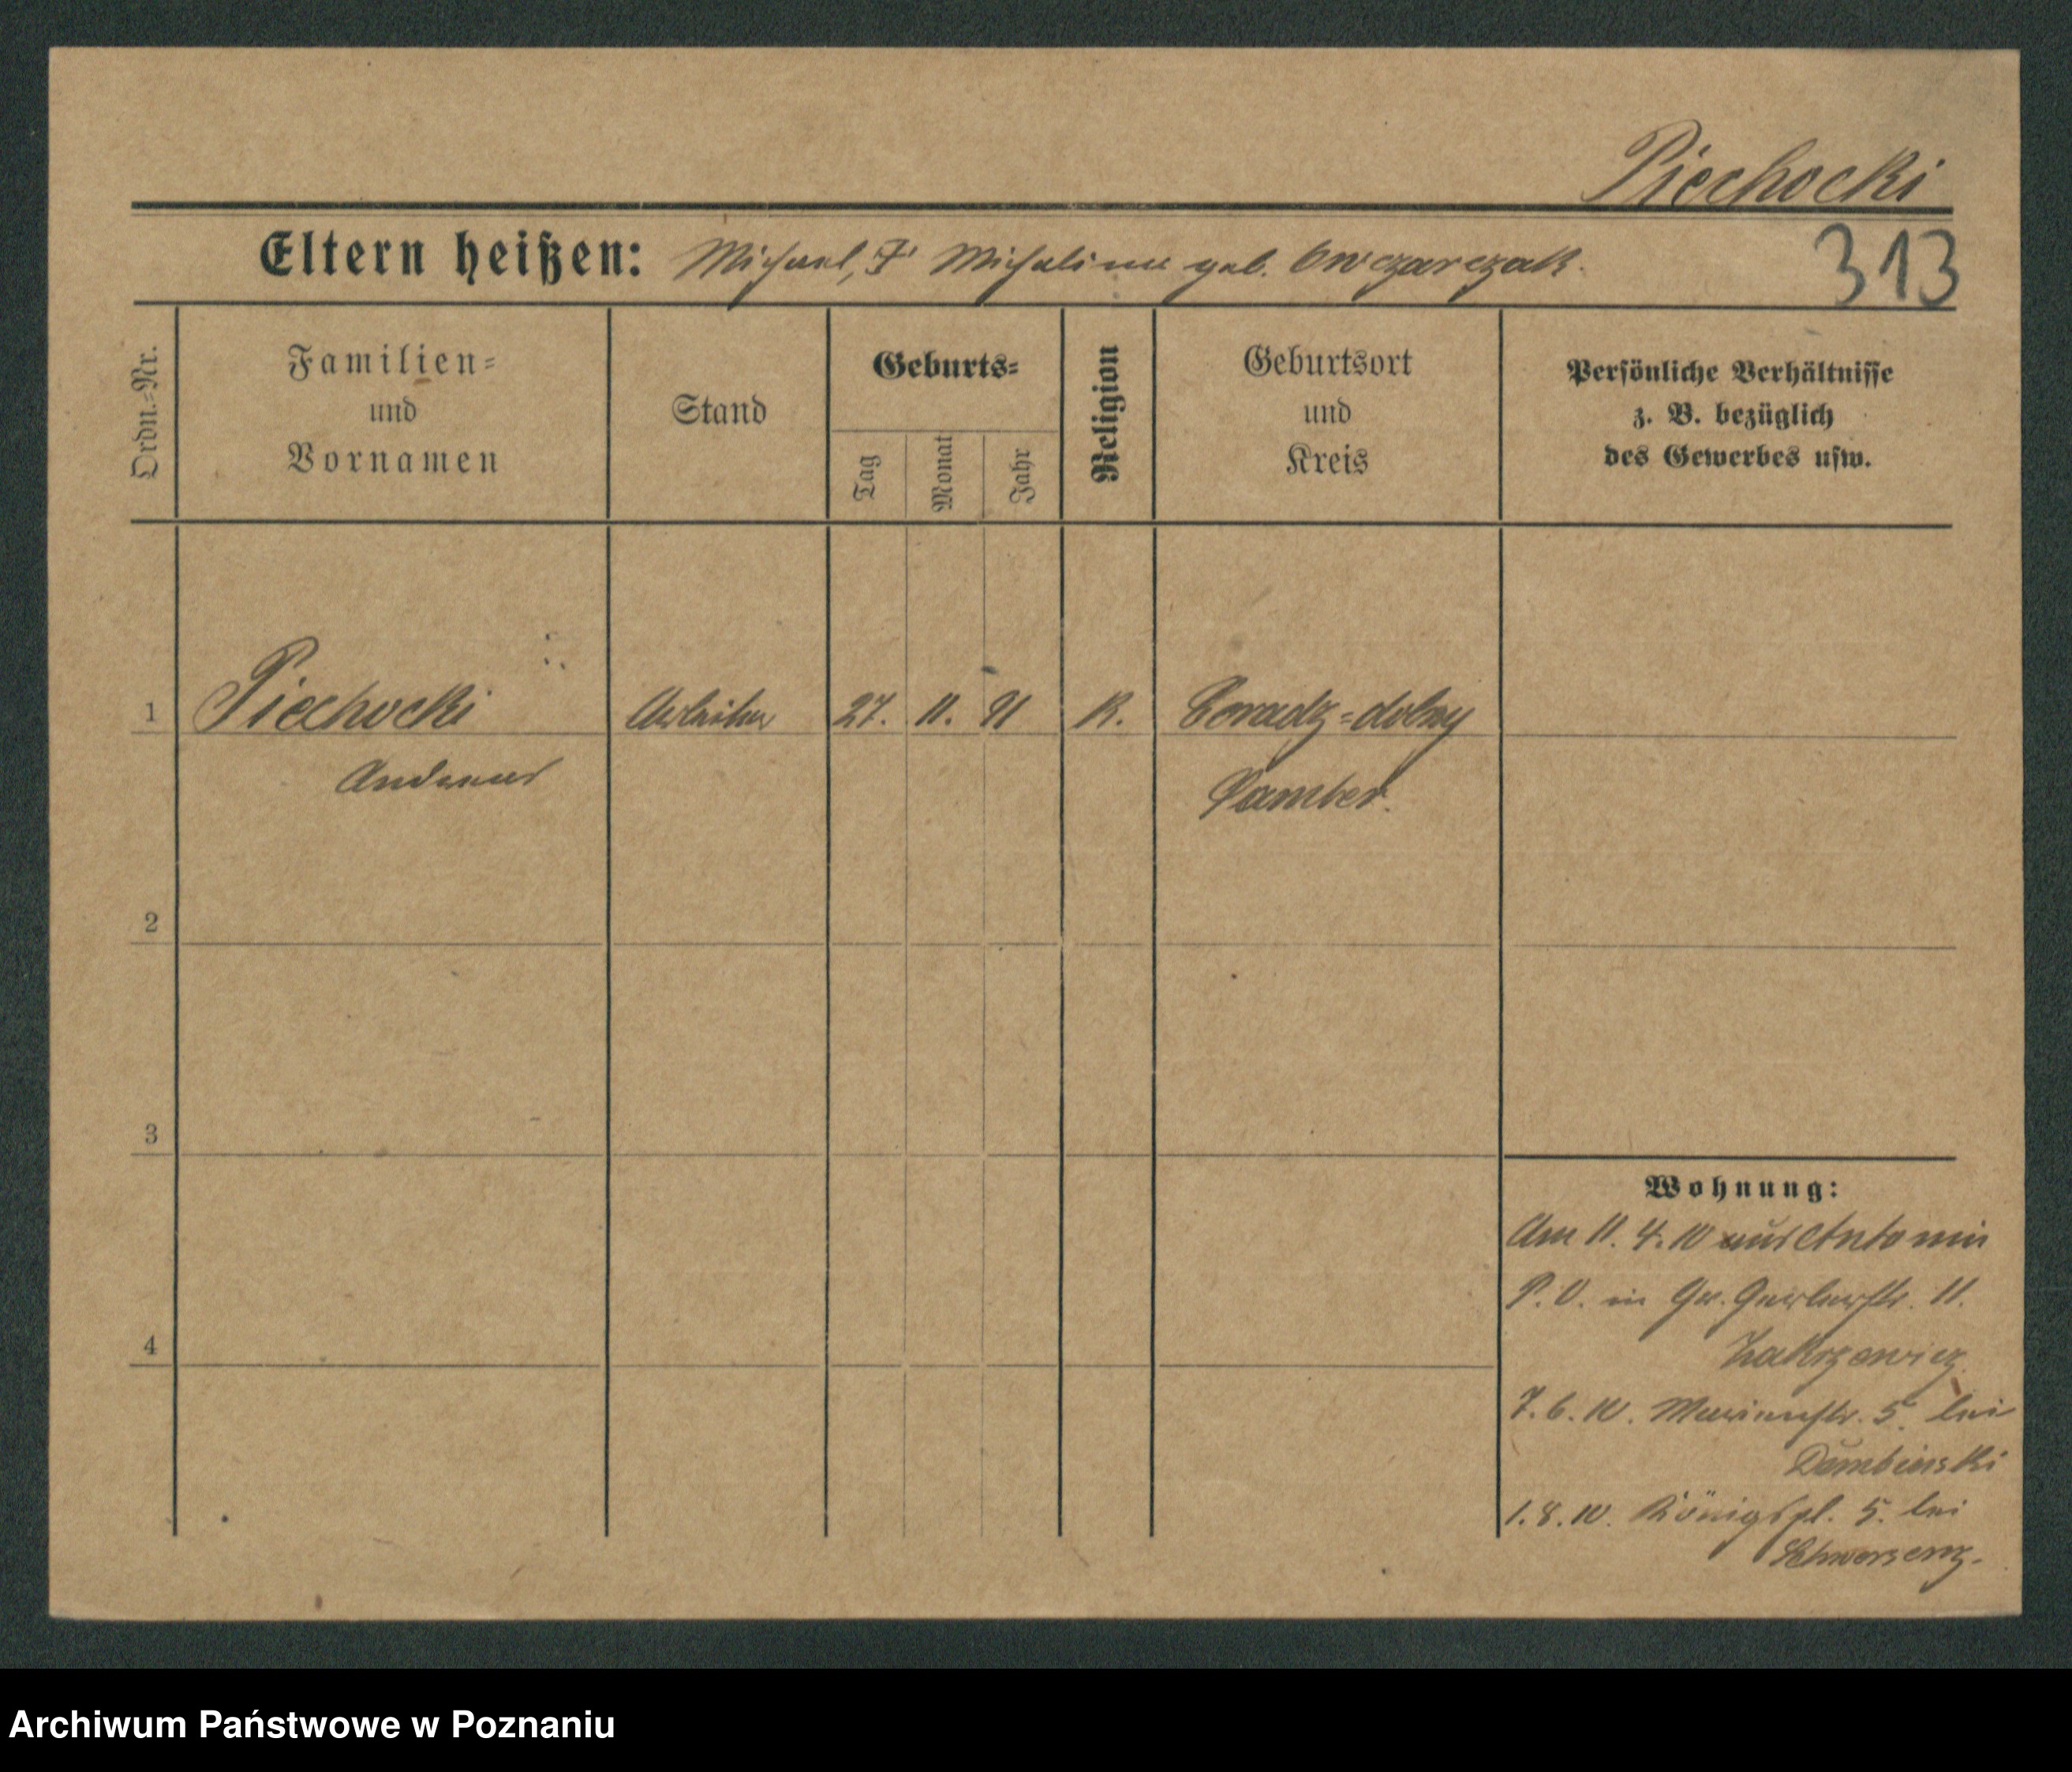 Piechocki
Eltern heißen: Michael, F Michalina geb. Owczarczak.
313
Ordn.-Nr.
Familien-
und
Vornamen
Stand
Geburts-
Tag
Monat
Jahr
Religion
Geburtsort
und
Kreis
Persönliche Verhältnisse
z. B. bezüglich
des Gewerbes usw.
1 Piechocki Arbeiter 27. 11. 91 K. -dolny
Andreas Samter.
2
3
4
Wohnung:
Am 11. 4. 10 aus Antonin
P. O. in Gr. Gerberstr. 11.
Zakrzewicz
7. 6. 10. Marienstr. 5. bei
Dembinski
1. 8. 10. Königspl. 5. bei
Schwersenz.
Archiwum Państwowe w Poznaniu